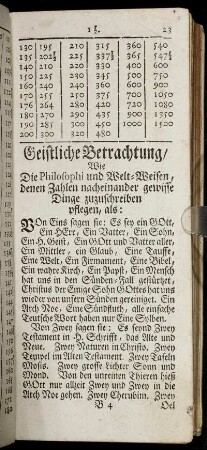 1 ½. 23
130 195 210 315 360 540
135 202½ 225 337½ 365 547½
140 210 220 330 400 600
150 225 230 345 500 750
160 240 240 360 600 900
168 252 250 375 700 1050
170 255 270 405 720 1080
176 264 280 420 800 1200
180 270 290 435 900 1350
190 285 300 450 1000 1500
200 300 320 480
Geistliche Betrachtung/
Wie
Die Philosophi und Welt-Weisen/
denen Zahlen nacheinander gewisse
Dinge zuzuschreiben
pflegen, als:
VOn Eins sagen sie: Es sey ein GOtt,
Ein HErr, Ein Vatter, Ein Sohn,
Ein H. Geist, Ein GOtt und Vatter aller,
Ein Mittler, ein Glaub, Eine Tauffe,
Eine Welt, Ein Firmament, Eine Bibel,
Ein wahre Kirch, Ein Papst, Ein Mensch
hat uns in den Sünden-Fall gestürtzet,
Christus der Einige Sohn GOttes hat uns
wieder von unsern Sünden gereiniget. Ein
Arch Noe, Eine Sündfluth, alle einfache
Teutsche Wort haben nur Eine Sylben.
Von Zwey sagen sie: Es seynd Zwey
Testament in H. Schrifft, das Alte und
Neue. Zwey Naturen in Christo. Zwey
Tempel im Alten Testament. Zwey Tafeln
Mosis. Zwey grosse Lichter Sonn und
Mond. Von den unreinen Thieren hieß
GOtt nur allzeit Zwey und Zwey in die
Arch Noe gehen. Zwey Cherubinn. Zwey
B 4 Oel